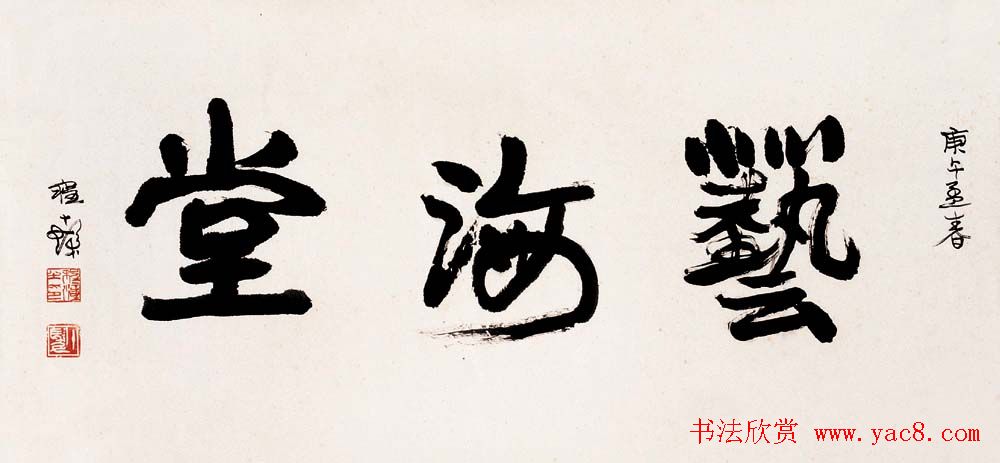 庚午孟春
藝海堂
程十髮
书法欣赏 www.yac8.com